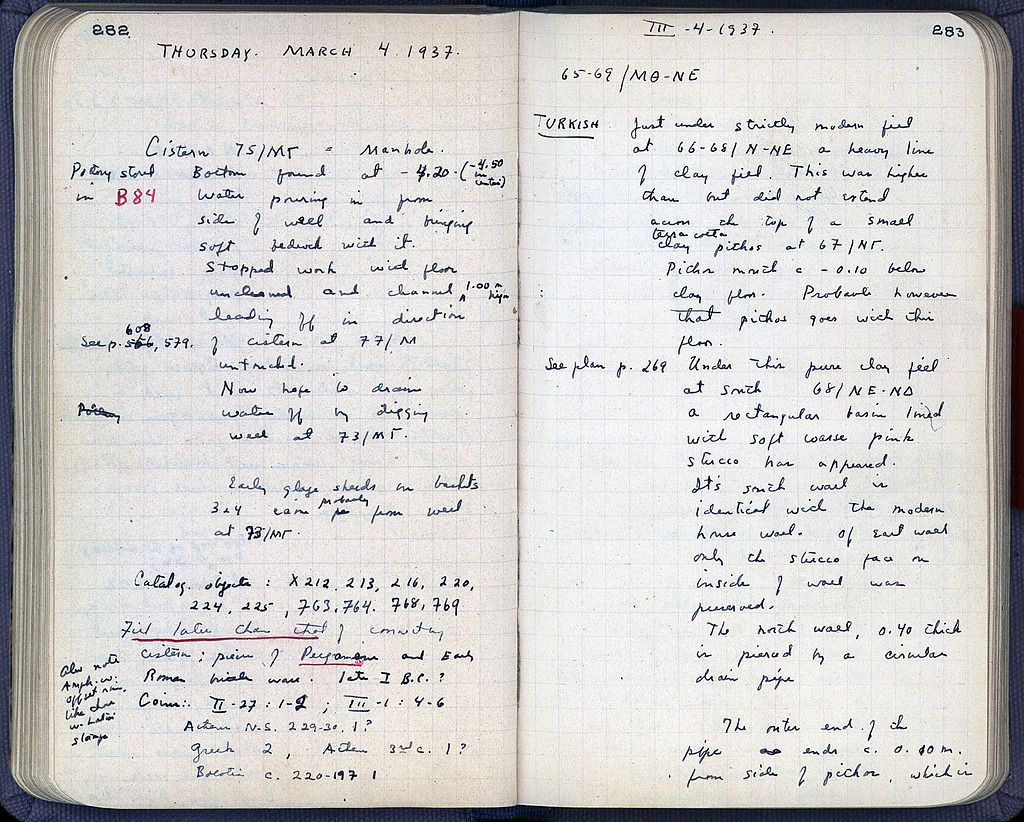 282
THURSDAY. MARCH 4. 1937.
Cistern 75/ΜΓ = Manhole.
Pottery stored
in B84
Bottom found at -4.20-(-4.50 in center)
Water pouring in from
side of well and bringing
soft bedrock with it.
Stopped work with floor
uncleaned and channel 1.00 m high
leading off in direction
See p. 566, 608, 579.
of cistern at 77/Μ
untouched.
Now hope to drain
Pottery
water off by digging
well at 73/ΜΓ.
Early glaze sherds in baskets
3+4 came probably from well
at 73/ΜΓ.
Catalog. objects : X 212, 213, 216, 220,
224, 225, 763, 764, 768, 769
Fill later than that of connecting
cistern ; piece of Pergamene and Early
Roman ware. late I B.C. ?
Also note
Amph. w.
offset rim,
like those
w. Latin
stamps
Coins: II-27 : 1-2 ; III-1 : 4-6
Athens N.S. 229-30. 1 ?
Greek 2, Athen 3rd c. 1 ?
Boeotia c. 220-197 1
III -4-1937.
283
65-69/ΜΘ-ΝΕ
TURKISH
Just under strictly modern fill
at 66-68/Ν-ΝΕ a heavy line
of clay fill. This was higher
than but did not extend
across the top of a small
terra cotta
clay pithos at 67/ΝΓ.
Pithos mouth c -0.10 below
clay floor. Probable however
that pithos goes with this
floor.
See plan p. 269
Under this pure clay fill
at south 68/ΝΕ-ΝΔ
a rectangular basin lined
with soft coarse pink
stucco has appeared.
It's south wall is
identical with the modern
house wall. Of East wall
only the stucco face on
inside of wall was
preserved.
The north wall, 0.40 thick
is pierced by a circular
drain pipe
The outer end of the
pipe ends c. 0.10 m.
from side of pithos, which is